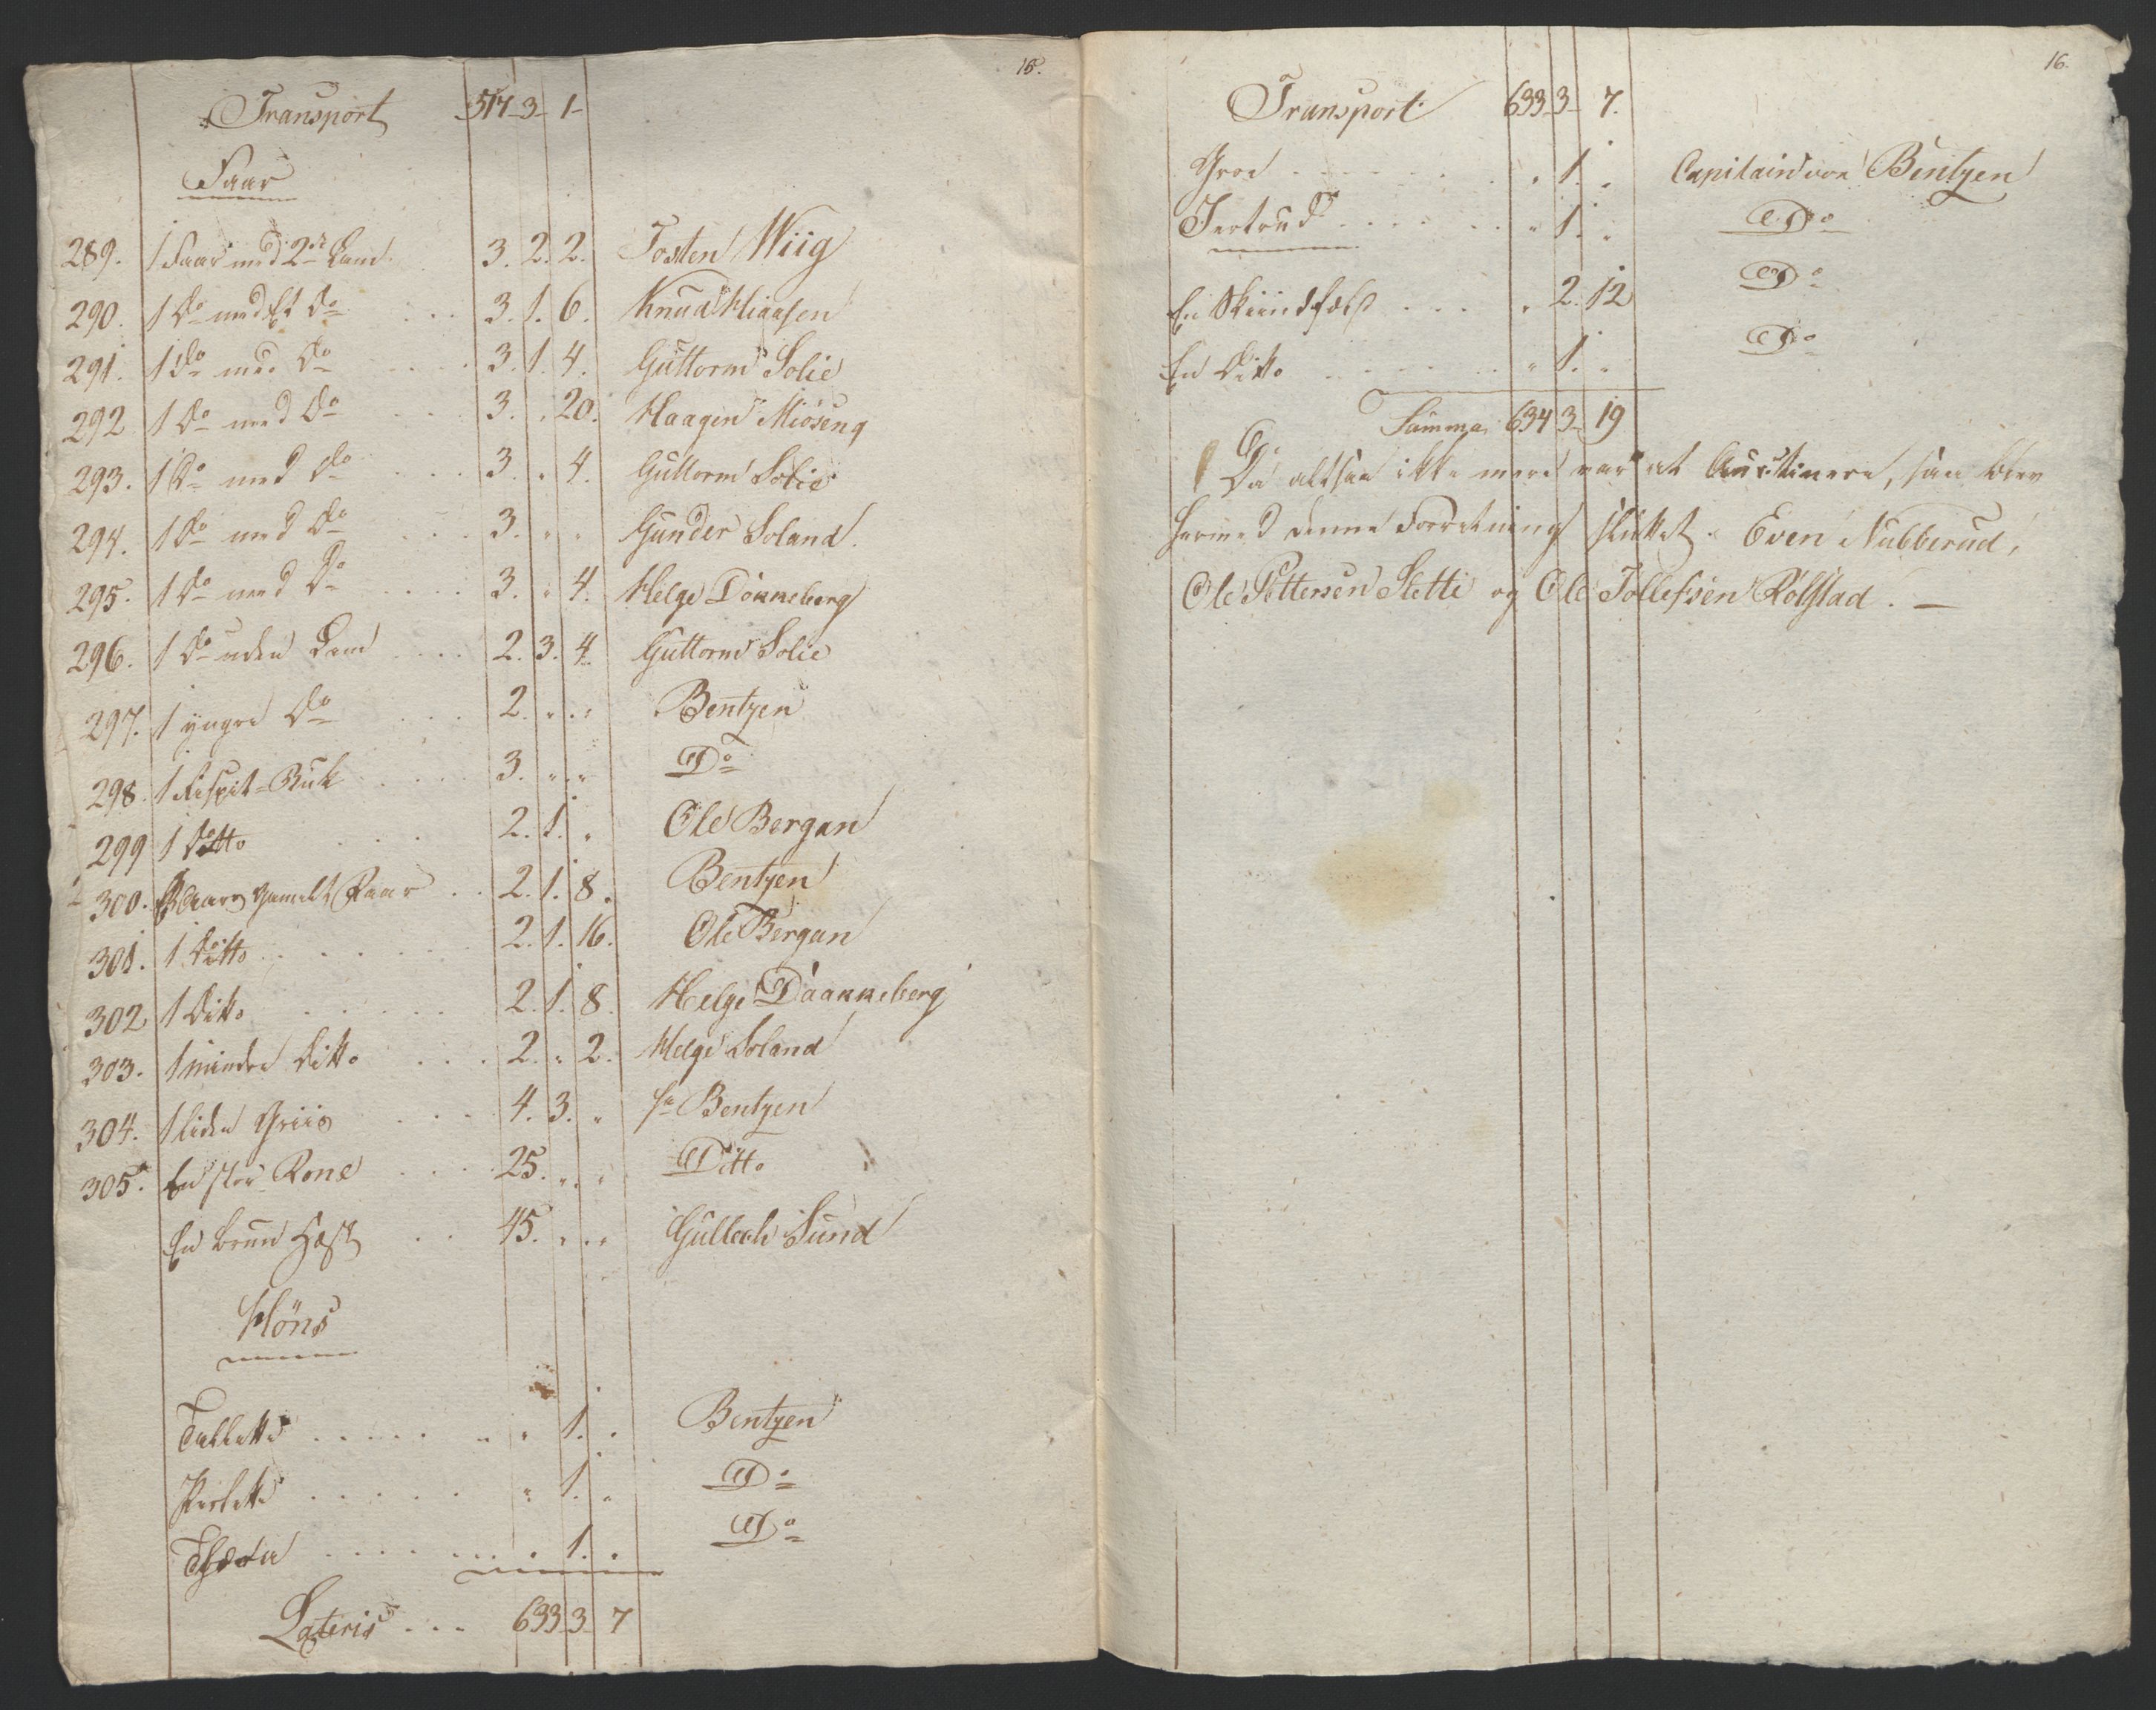 15.
Transport 517-3-1-
Faar
289. 1 Faar med 2de Lam. 3. 2. 2. Tosten Wiig
290. 1 Do med Et Do 3. 1. 6. Knud
291. 1 Do med Do 3. 1. 4. Guttorm Solie
292 1 Do med Do 3. " 20. Haagen Miøseng
293. 1 Do med do 3. " 4. Guttorm Solie
294. 1 do med Do 3. " " Gunder Soland.
295. 1 do med Do 3. " 4. Helge Dokkeberg
296. 1 Do uden Lam 2. 3. 4. Guttorm Solie
297. 1 yngre Do 2. " " Bentzen
298. 1 Buk 3. " " Do
299 1 Ditto 2. 1. " Ole Bergan
300. Aars gamelt Faar 2. 1. 8. Bentzen
301. 1 Ditto 2. 1. 16. Ole Bergan
302 1 Ditto 2. 1. 8. Helge Daakkeberg
303. 1 mindre Ditto 2. " 2. Helge Soland
304. 1 liden Griis 4. 3. " Bentzen
305. En stor Rone 25. " " Ditto
En bruun Hæst 45. " " Gullech Sund
Höns
" 1. " Bentzen
Perlette " 1. " Do
" 1. " Do
Lateris 633-3-7
16.
Transport 633-3-7.
Groe " 1. " Capitain von Bentzen
Jertrud " 1. " Do
En Skiindfæld " 2. 12 Do
En Ditto " 1. " Do
Summa 634 3- 19
Da altsaa ikke mere var at Auctionere, saa blev
hermed denne Forretning sluttet. Even Nubberud,
Ole Pettersen Sletti og Ole Tollefsen Rolstad. —